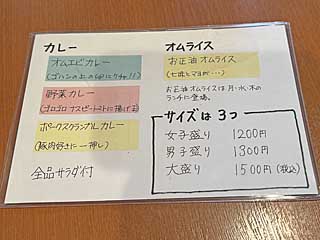 カレー
オムエビカレー
(ゴハンの上の卵にケチャ!!)
野菜カレー
(ゴロゴロナスピートマトに揚げ玉)
ポークスクランブルカレー
(豚肉好きに一押し)
全品サラダ付
オムライス
お正油オムライス
(七味とマヨが…)
お正油オムライスは月・水・木の
ランチに登場。
サイズは3つ
女子盛り 1200円
男子盛り 1300円
大盛り 1500円(税込)